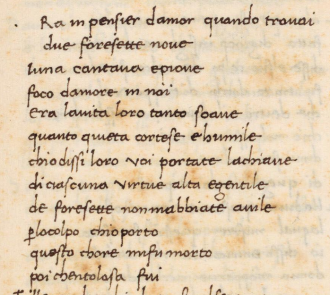 Ra in pensier damor quando trovai
due foresette nove
luna cantava epiove
foco damore in noi
Era lavita loro tanto soave
quanto queta cortese ehumile
chio dissi loro voi portate lachiave
di ciascuna virtue alta egentile
de foresette non mabbiate avile
p̲locolpo chioporto
questo chore mifu morto
poi chentolosa fui